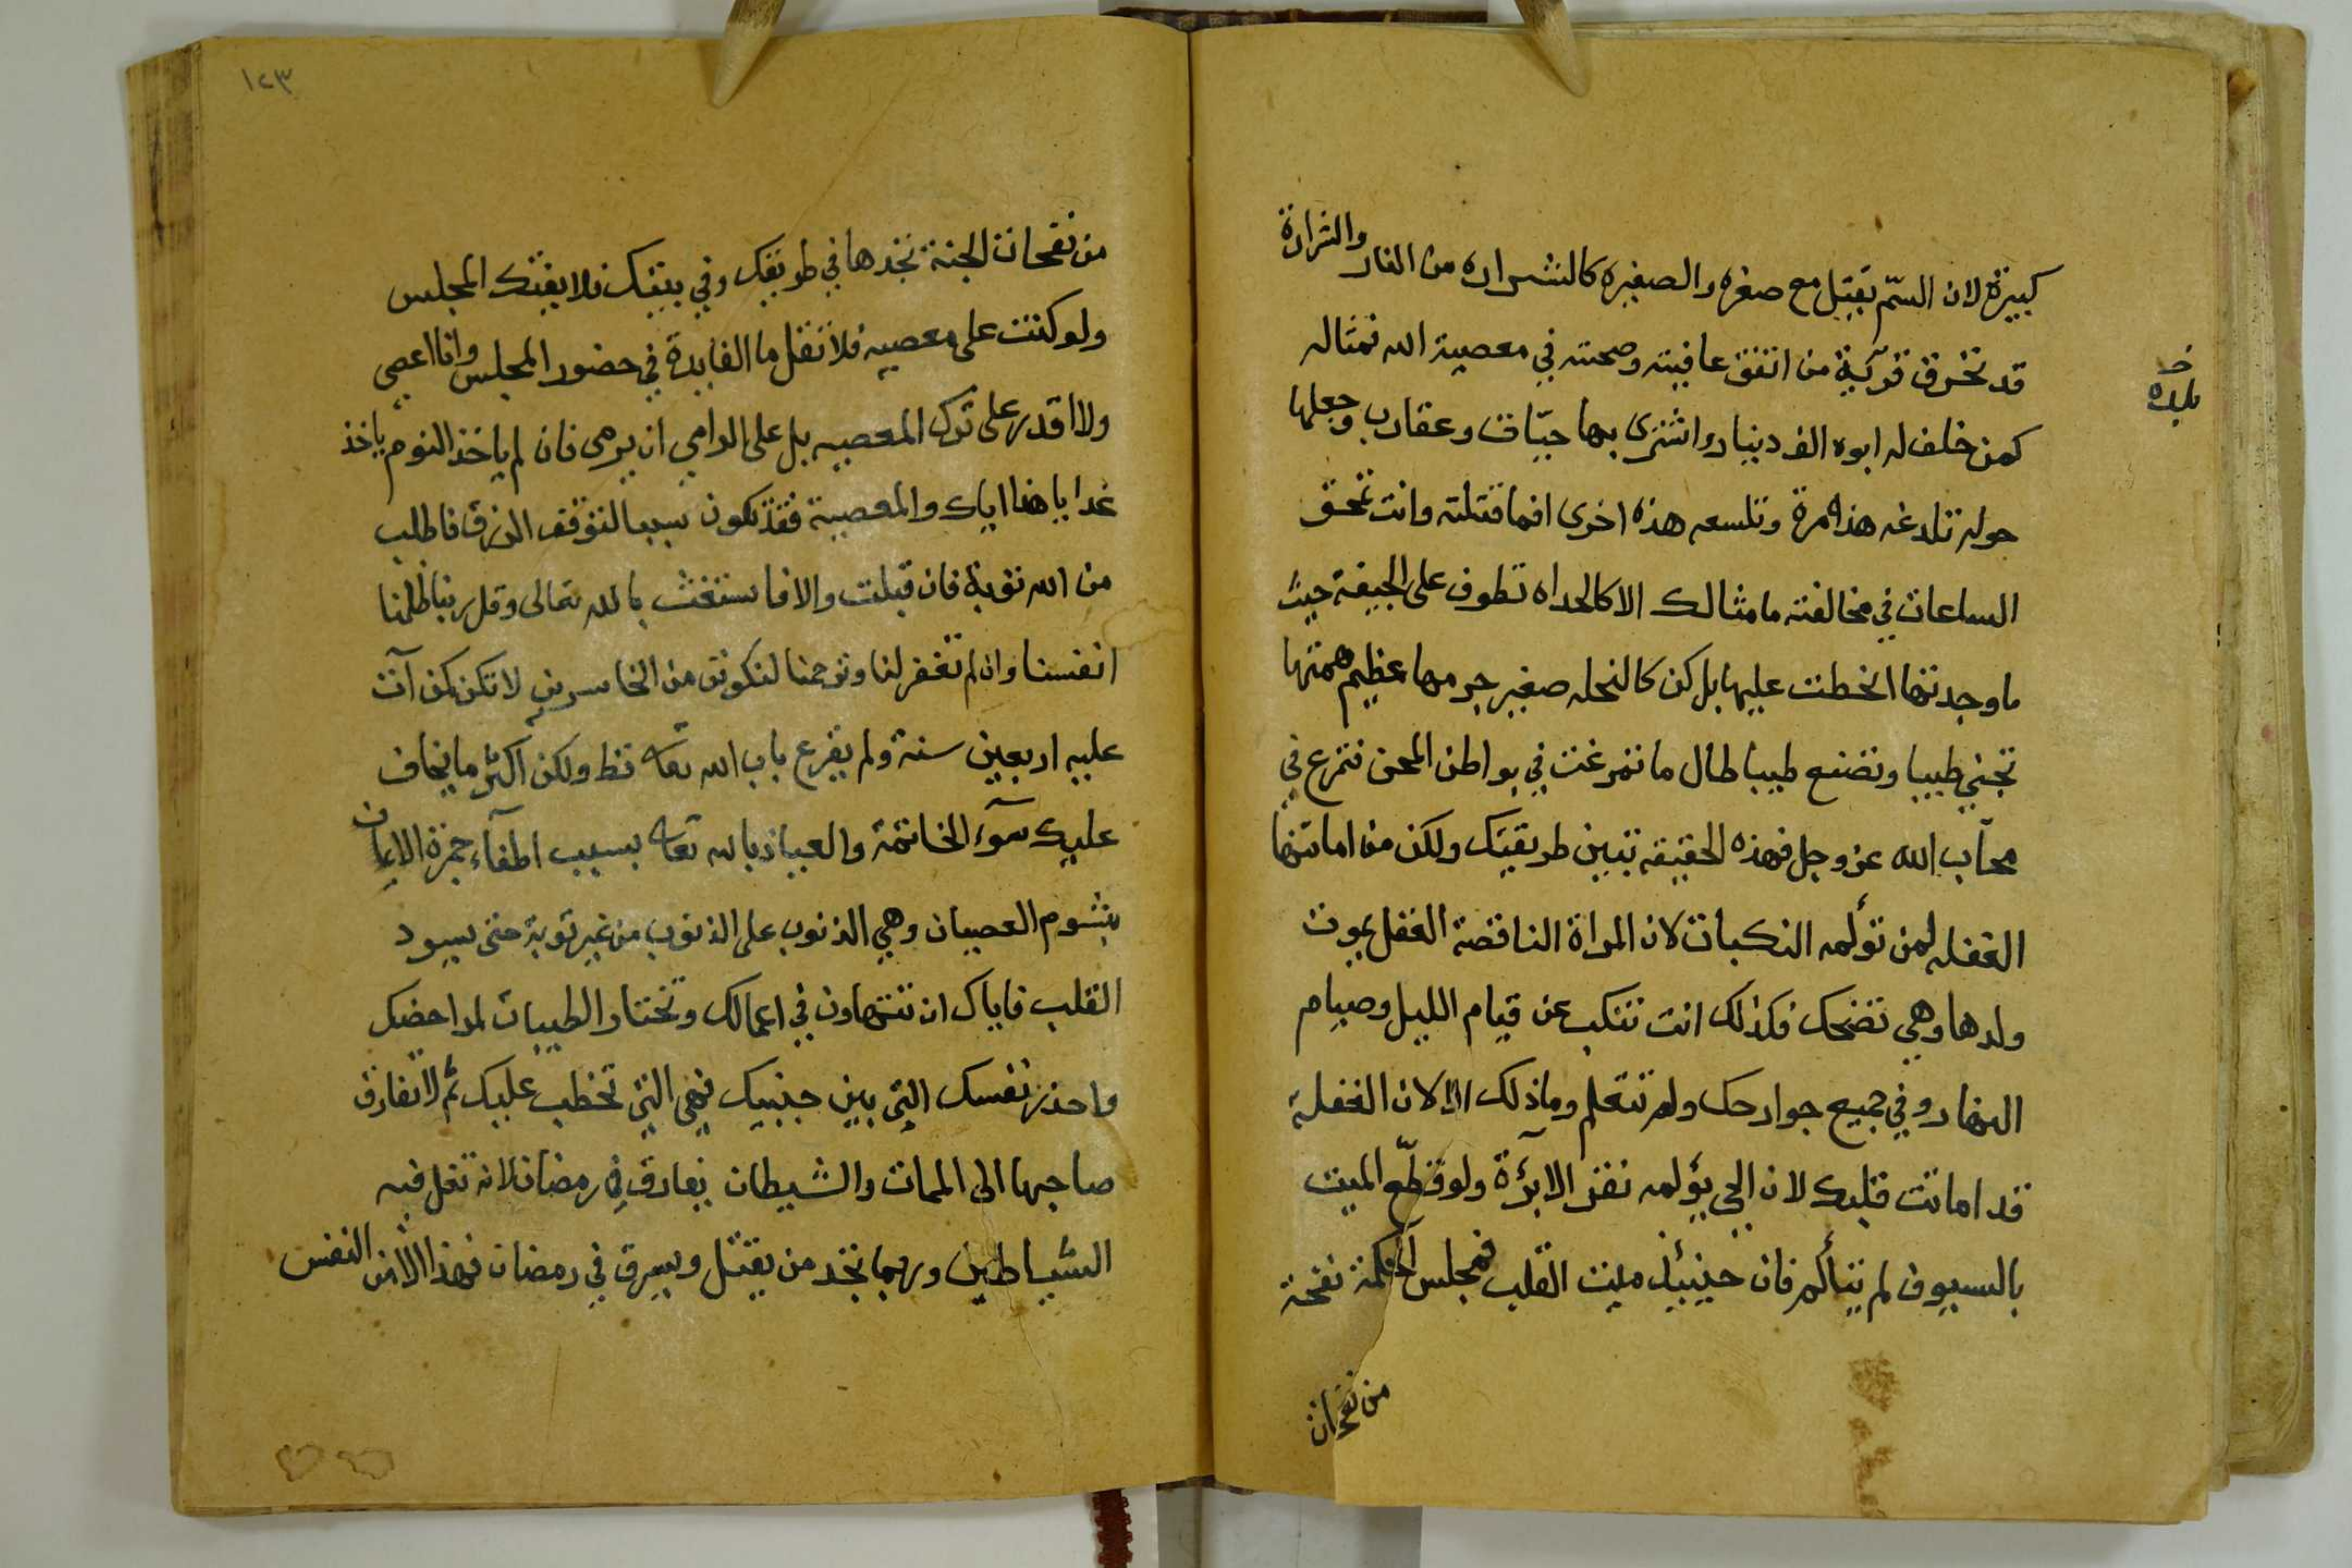 كبيرة لان السّم يقتل مع صغره والصغيره كالشراره من النار والشرارة
قد تحرق قرية من انفق عافيته وصحته في معصية الله فمثاله
كمن خلف له ابوه الف دينار واشترى بها حيّات وعقارب وجعلها
حوله تلدغه هذه مرة وتلسعه هذه اخرى افما قتلته وانت تمحق
الساعات في مخالفته ما مثالك الا كالحداه تطوف على الجيفة حيث
ما وجدتها انحطت عليها بل كن كالنحله صغير جرمها عظيم همتها
تجني طيبا وتضع طيبا طال ما تمرغت في بواطن المحن فتمرغ في
محاب الله عز وجل فهذه الحقيقه تبين طريقتك ولكن من اماتتها
الغفله لمن تؤلمه النكبات لان المراة الناقصة العقل يموت
ولدها وهي تضحك فكذلك انت تنكب عن قيام الليل وصيام
النهار وفي جميع جوارحك ولم تتعلم وما ذلك الا لان الغفلة
قد اماتت قلبك لان الحي يؤلمه نغز الابرة ولو قطّع الميت
بالسيوف لم يتألم فان حينئذ ميت القلب فمجلس الحكمة نفحة
من نفحات
خـ
بلده
١٢٣
من نفحات الجنة تجدها في طريقك وفي بيتك فلا يفتك المجلس
ولو كنت على معصيه فلا تقل ما الفايدة في حضور المجلس وانا اعصي
ولا اقدر على ترك المعصيه بل على الرامي ان يرمى فان لم ياخذ اليوم ياخذ
غدا يا هذا اياك والمعصية فقد تكون سببا لتوقف الرزق فاطلب
من الله توبة فان قبلت والا فاستغث بالله تعالى وقل ربنا ظلمنا
انفسنا وان لم تغفر لنا وترحمنا لنكونن من الخاسرين لا تكن كمن آتت
عليه اربعين سنة ولم يقرع باب الله تعا قط ولكن اكثر ما يخاف
عليك سوء الخاتمة والعياذ بالله تعا بسبب اطفاء جمرة الايمان
بشوم العصيان وهي الذنوب على الذنوب من غير توبة حتى يسود
القلب فاياك ان تتهاون في اعمالك وتختار الطيبات لمراحضك
واحذر نفسك التي بين جنبيك فهي التي تحطب عليك ثم لا تفارق
صاحبها الى الممات والشيطان يفارق في رمضان لانه تغل فيه
الشياطين وربما تجد من يقتل ويسرق في رمضان فهذا الا من النفس